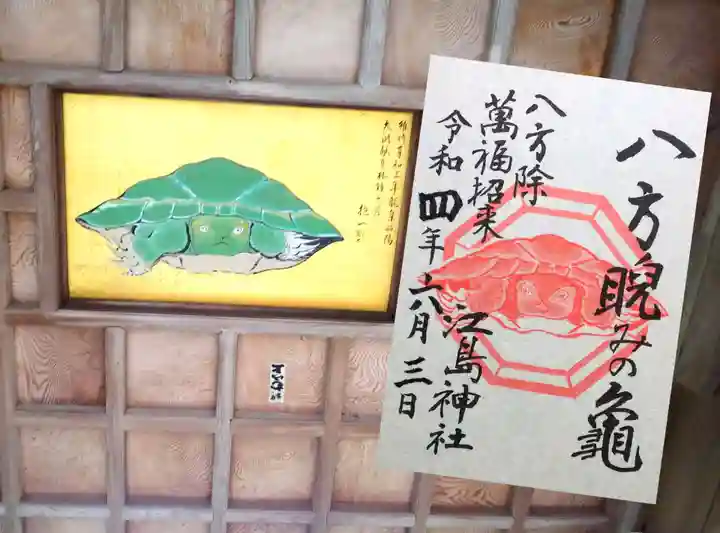 八方睨みの亀
八方除
萬福招来
令和四年六月三日
江島神社
抱一